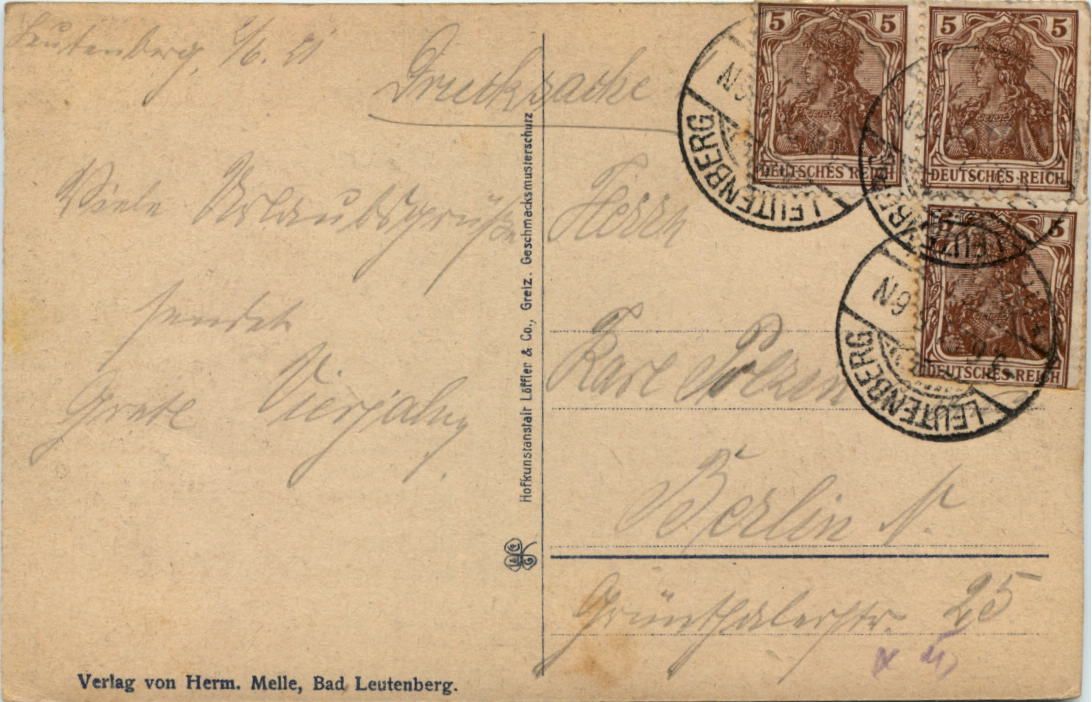 Leutenberg, 6. 21
Drucksache
Viele Urlaubsgrüße
sendet
Grete
Herrn
Karl
Berlin N.
Grünthalerstr. 25
Hofkunstanstalt Löffler & Co., Greiz. Geschmacksmusterschutz
Verlag von Herm. Melle, Bad Leutenberg.
5 5
DEUTSCHES REICH
5 5
DEUTSCHES REICH
5
DEUTSCHES REICH
LEUTENBERG
LEUTENBERG
LEUTENBERG